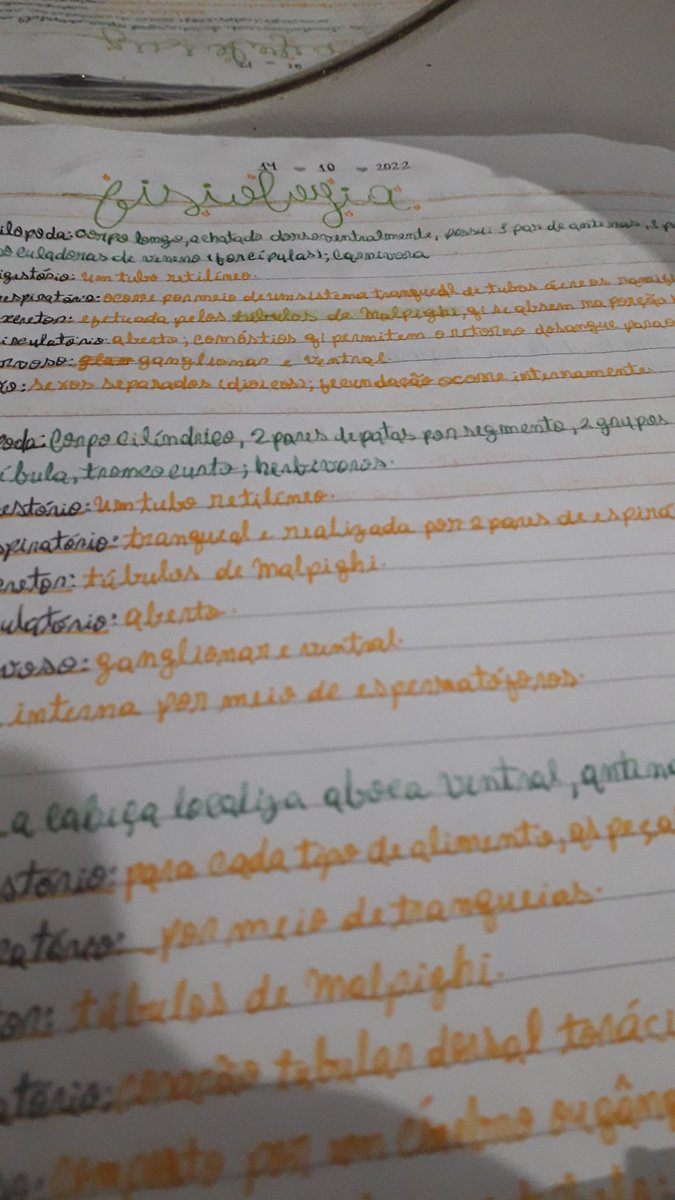 14 - 10 - 2022
Fisiologia
ilopoda: corpo longo, achatado dorsoventralmente, possui 1 par de antenas, 1 p
oculadoras de veneno (forcípulas); carnívora
igestório: um tubo retilíneo.
respiratório: ocorre por meio de um sistema traqueal de tubos aéreos ramifi
xcretor: efetuada pelos túbulos de Malpighi, q/ se abrem na porção
irculatório: aberto; com óstios q/ permitem o retorno do sangue para o
ervoso: ganglionar e ventral.
ão: sexos separados (dioicos); fecundação ocorre internamente.
oda: Corpo cilíndrico, 2 pares de patas por segmento, 2 grupos
íbula, tronco curto; herbívoros.
estório: um tubo retilíneo.
spiratório: tranqueal e realizada por 2 pares de espirá
cretor: túbulos de Malpighi.
ulatório: aberto.
voso: ganglionar e ventral.
interna por meio de espermatóforos.
a cabeça localiza a boca ventral, antena
stório: para cada tipo de alimento, as peça
atório: por meio de tranqueias.
or: túbulos de Malpighi.
atório: coração tubular dorsal toráci
composto por um cérebro ou gâng